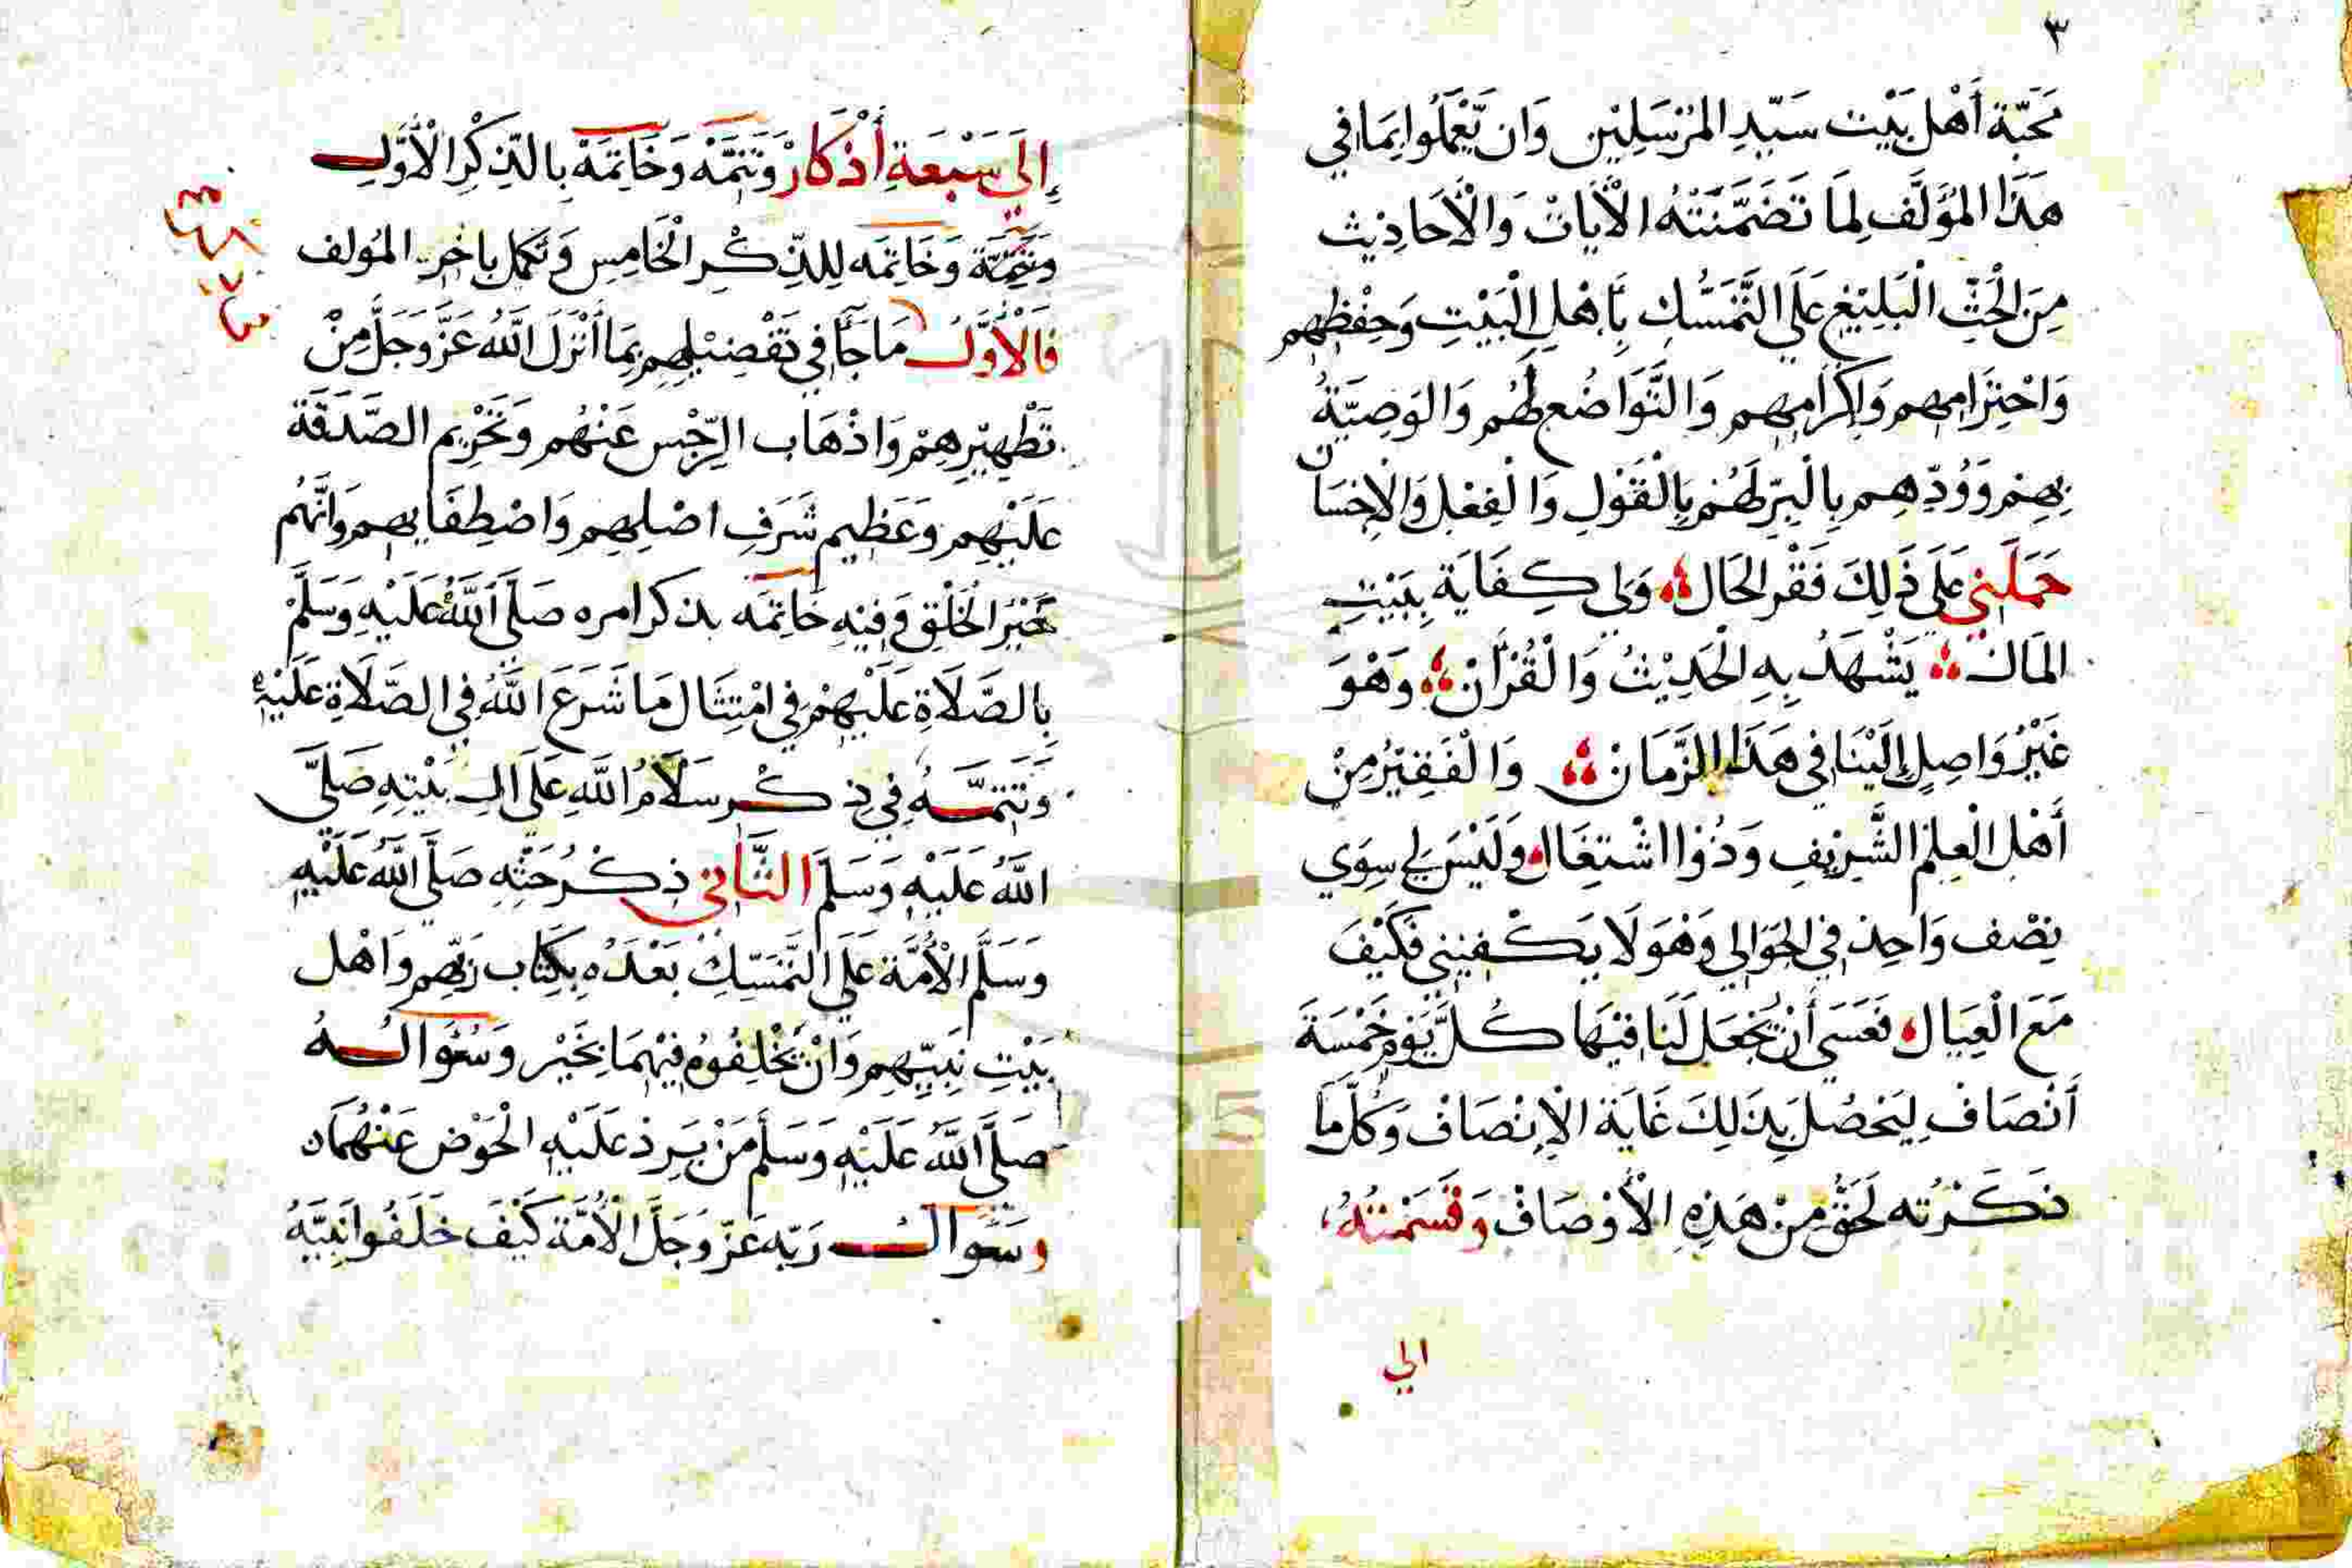 ٣
مَحَبَّة أَهْل بَيْت سَيّدِ المُرْسَلِيْن وَان تَّعْمَلُوا بِمَا في
هَذَا المُؤلَّف لِمَا تَضَمَّنَتْهُ الْأيَاتْ وَالْأَحَادِيث
مِنَ الْحَثِّ الْبَلِيْغِ عَلَي التَّمَسُّكِ بَأَهْلِ الْبَيْتِ وَحِفْظِهِم
وَاحْتِرَامِهِم وَإِكْرَامِهِم وَالتَّوَاضُع لَهُم وَالوَصِيَّةُ
بِهِمْ وَوُدِّهِم بِالْبِرِّ لَهُمْ بِالْقَوْلِ وَالْفِعْلِ وَالْإِحْسَان
حَمَلَنِي عَلَى ذَلِكَ فَقْر الحَال وَلِي كِفَايَة بِبَيْتِ
المَال يَشْهَدُ بِهِ الْحَدِيْثُ وَالْقُرْأَنْ وَهْوَ
غَيْرُ وَاصِلٍ إِلَيْنَا فِي هَذَا الزَّمَانْ وَالْفَقِيْرُ مِنْ
أَهْلِ الْعِلْمِ الشَّرِيْفِ وَذُوْا اشْتِغَال وَلَيْسَ لِي سِوَي
نِصْف وَاحِدْ فِي الجَوَالِي وَهْوَ لَا يَكْفِيْنِي فَكَيْفَ
مَعَ الْعِيَال فَعَسَي أَنْ يُجْعَل لَنَا فِيْهَا كُلَّ يَوْمٍ خَمْسَةَ
أَنْصَافْ لِيَحْصُل بِذَلِكَ غَايَة الْإِنْصَافْ وَكُلَّ مَا
ذَكَرْتُه لَحَقٌّ مِنْ هَذِهِ الْأَوْصَافْ وَقَسَمْتُهُ
الي
إِلَى سَبْعَةِ أَذْكَارْ وَتَتِمَّة وَخَاتِمَة بِالذِّكْرِ الْأَوَّلِ
وَتَتِمَّة وَخَاتِمَه لِلذِّكْرِ الْخَامِسِ وَتَكْمُل بِاخِرِ المُولف
فَالْأَوَّلُ مَا جَآ فِي تَفْضِيْلِهِم بِمَا أَنْزَلَ اللَّهُ عَزَّ وَجَلَّ مِنْ
تَطْهِيْرِهِمْ وَاذْهَاب الرِّجْس عَنْهُم وَتَحْرِيْم الصَّدَقَة
عَلَيْهِم وَعَظِيم شَرَفِ اصْلِهِم وَاصْطِفَايِهِم وَانَّهُم
خَيْرُ الْخَلْقِ وَفِيْهِ خَاتِمَه بذكر امره صَلَّى اللَّهُ عَلَيْهِ وَسَلَّمْ
بِالصَّلَاةِ عَلَيْهِمْ فِي امْتِثَال مَا شَرَعَ اللَّهُ فِي الصَّلَاةِ عَلَيْهِم
وَتَتِمَّهُ فِي ذِكْر سَلَامُ اللَّهِ عَلَى الِ بَيْتِهِ صَلَّى
اللَّهُ عَلَيْهِ وَسَلَّمَ الثَّانِي ذِكْرُ حَثِّهِ صَلَّى اللَّهُ عَلَيْهِ
وَسَلَّمَ الْأُمَّة عَلَي التَّمَسُّكِ بَعْدَهُ بِكِتَاب رَبِّهِم وَاهْل
بَيْتِ نَبِيِّهِم وَانْ يَخْلِفُوْهُ فِيْهِمَا بِخَيْر وَسُؤَالُهُ
صَلَّى اللَّهُ عَلَيْهِ وَسَلَّمَ مَنْ يَرِدْ عَلَيْهِ الْحَوْض عَنْهُمَا
وَسُؤَالُ رَبِّه عَزَّ وَجَلَّ الْأُمَّة كَيْفَ خَلَفُوا نَبِيَّهُ